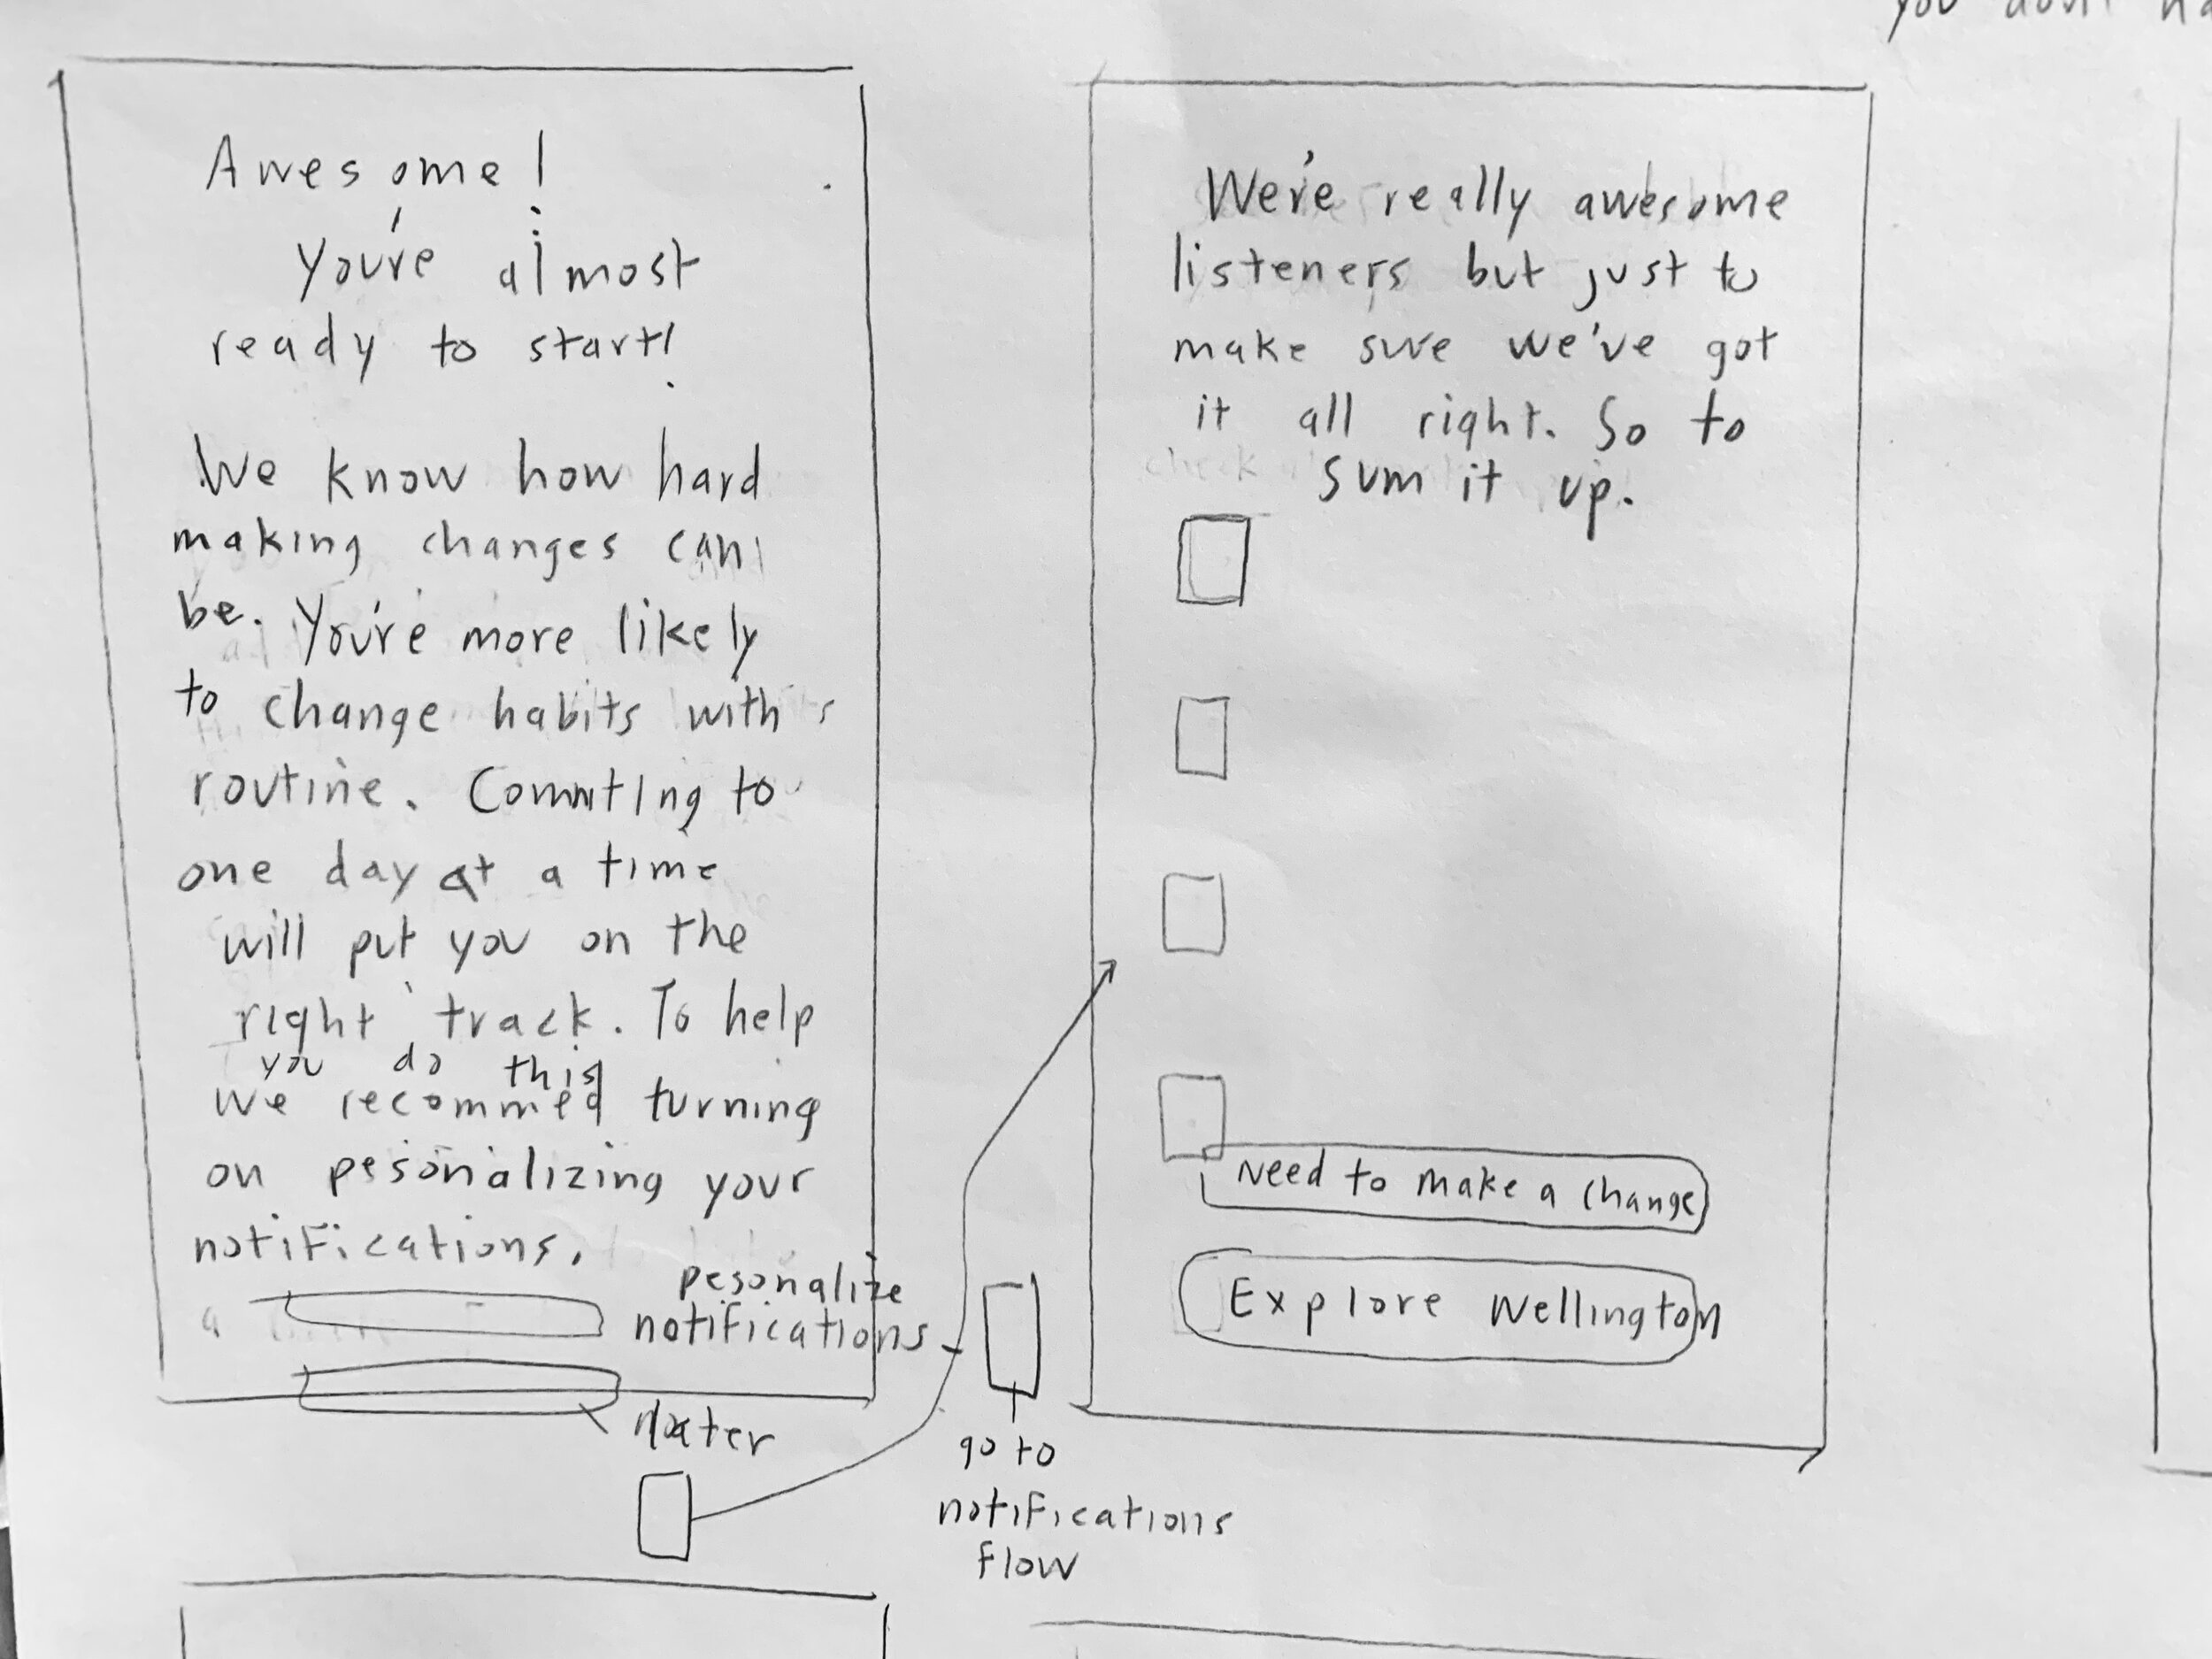 you don't
Awesome!
You're almost
ready to start!
We know how hard
making changes can
be. You're more likely
to change habits with
routine. Commiting to
one day at a time
will put you on the
right track. To help
you do this
we recommed turning
on pesonalizing your
notifications.
pesonalize
notifications
later
go to
notifications
flow
We're really awesome
listeners but just to
make sure we've got
it all right. So to
check
sum it up.
Need to make a change
Explore Wellington